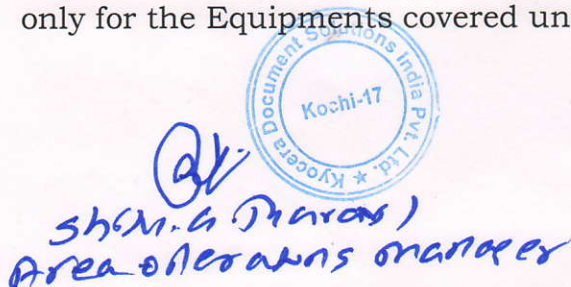 only for the Equipments covered un
Kyocera Document Solutions India Pvt. Ltd. ★
Kochi-17
Area operations manager